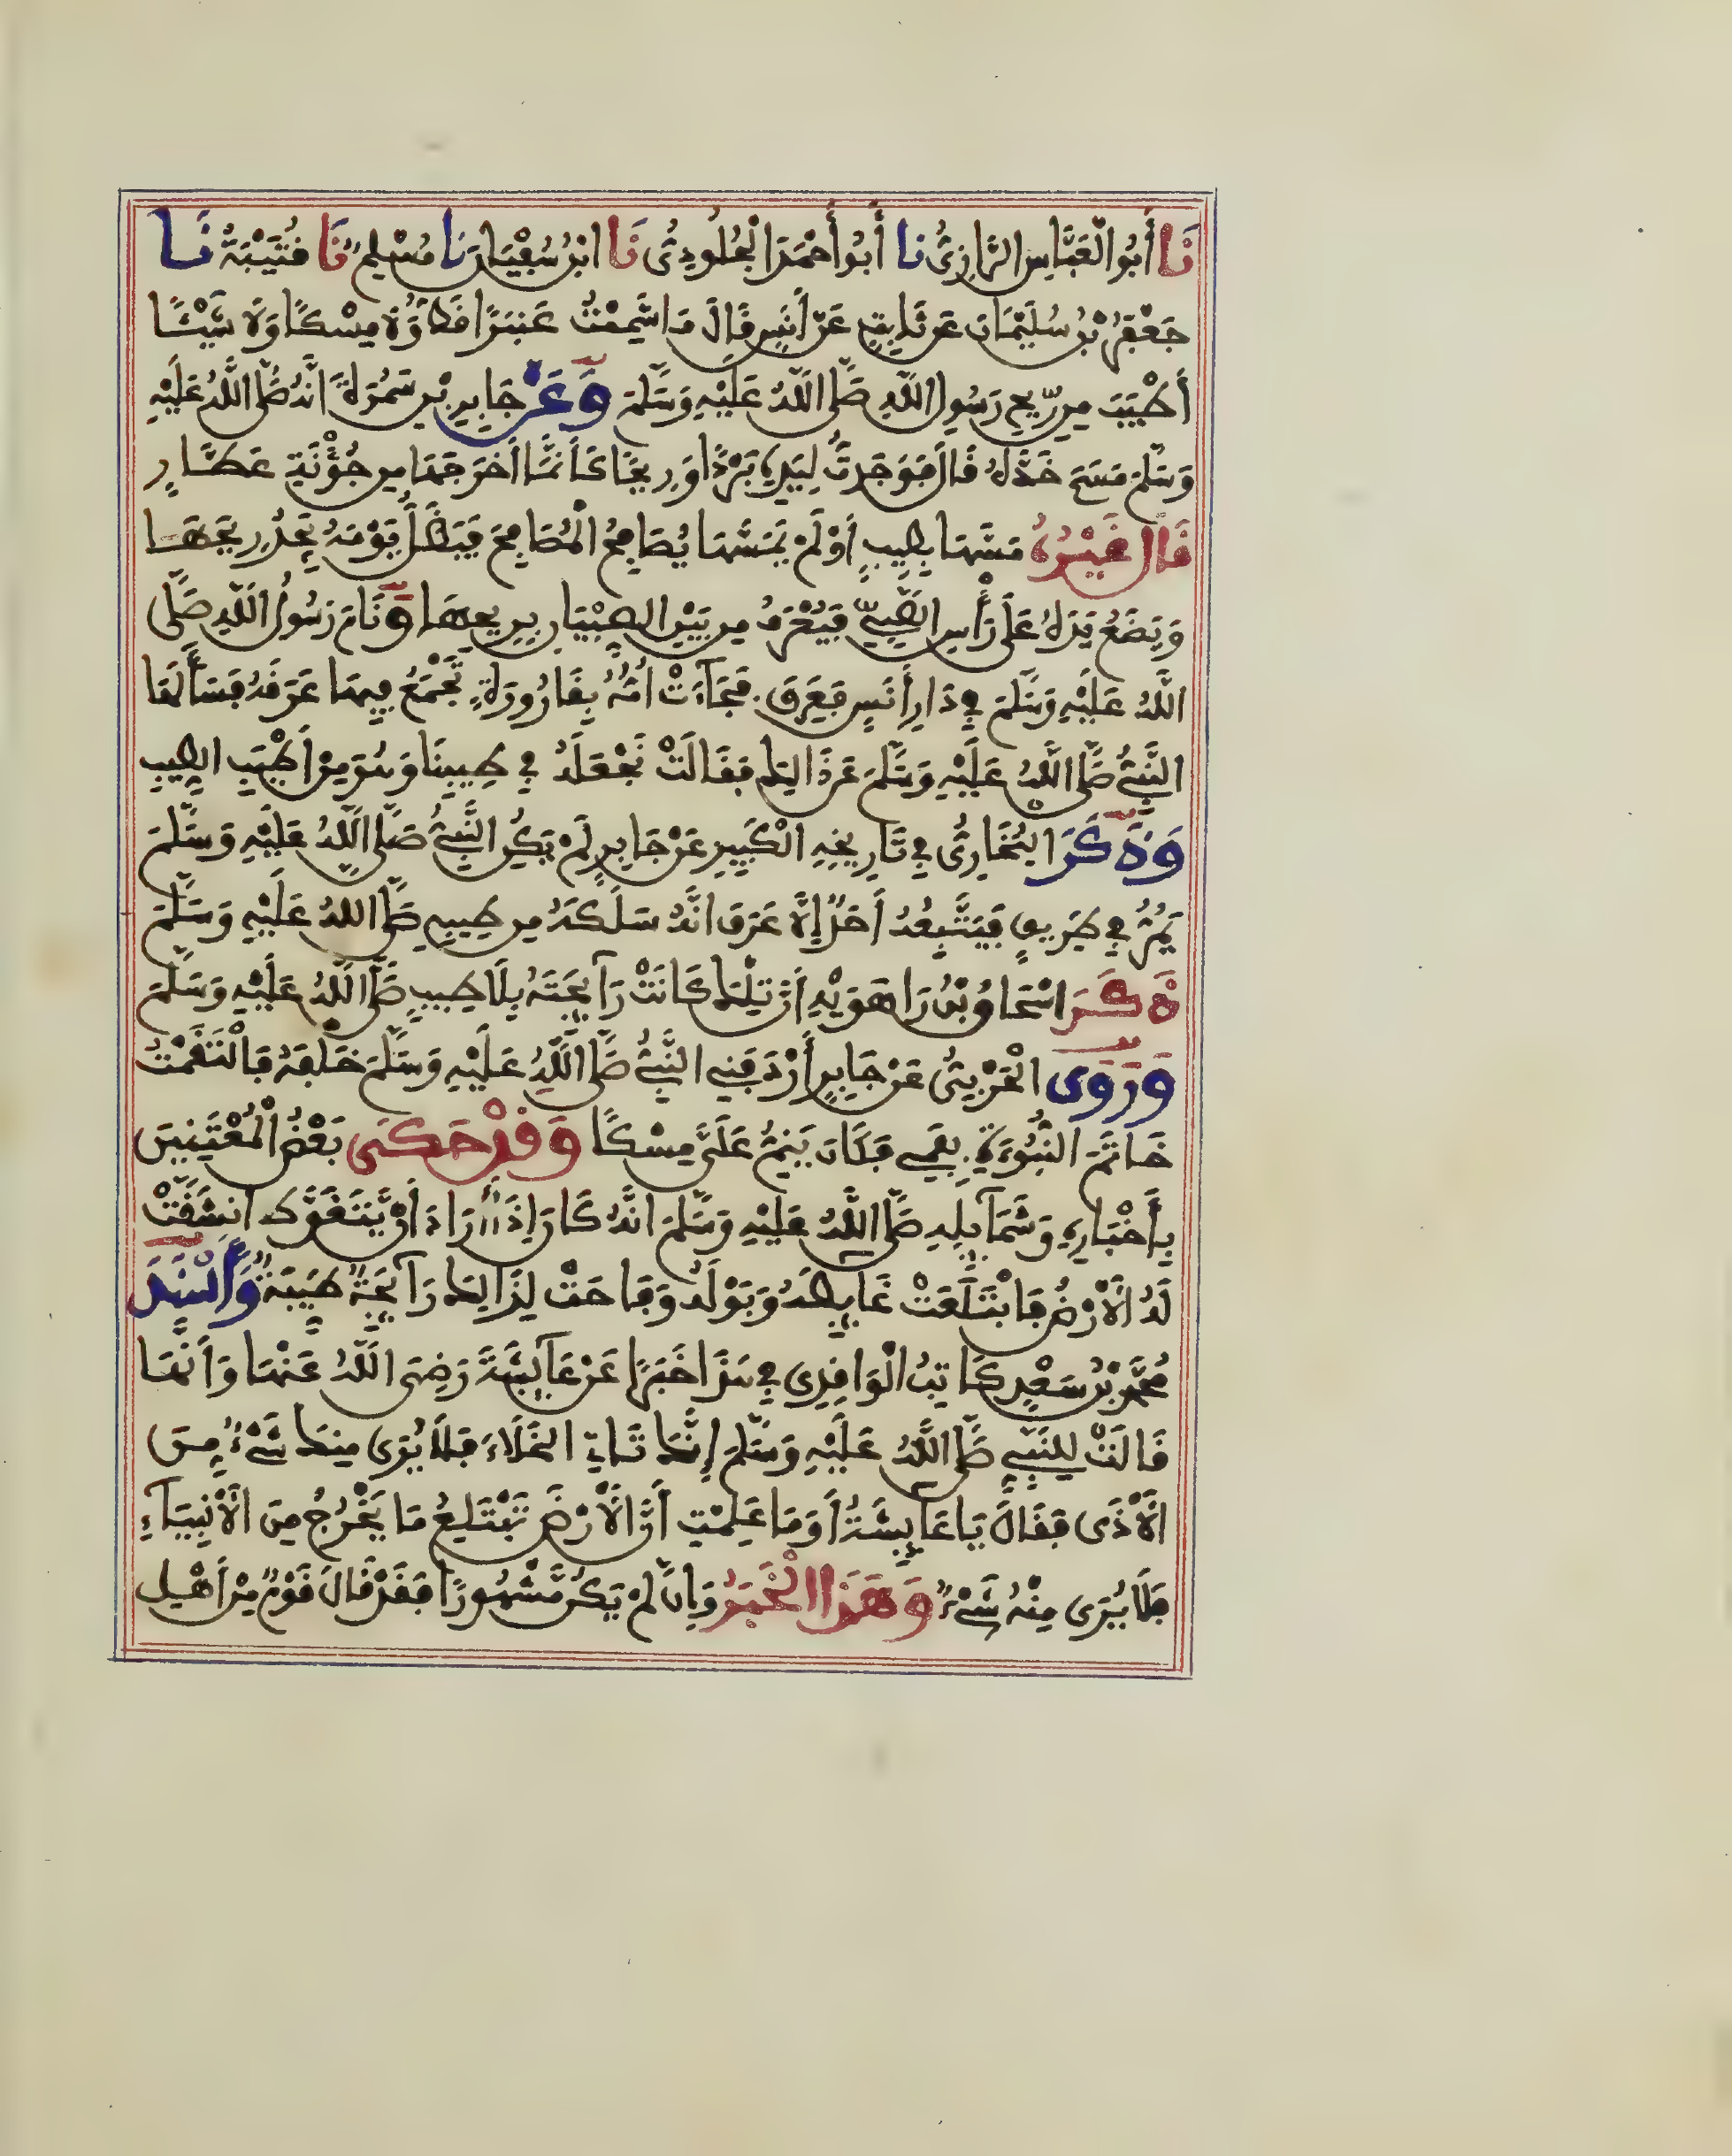 نَا أَبُو الْعَبَّاسِ الرَّازِيُّ نا أَبُو أَحْمَدَ الْجُلُودِيُّ نَا ابْنُ سُفْيَانَ نَا مُسْلِمٌ نَا قُتَيْبَةُ نَا
جَعْفَرُ بْنُ سُلَيْمَانَ عَن ثَابِتٍ عَنْ أَنَسٍ قَالَ مَا شَمِمْتُ عَنبَرًا قَطُّ وَلَا مِسْكًا وَلَا شَيْئًا
أَطْيَبَ مِن رِّيحِ رَسُولِ اللَّهِ صَلَّى اللَّهُ عَلَيْهِ وَسَلَّمَ وَعَنْ جَابِرِ بْنِ سَمُرَةَ انَّهُ صَلَّى اللَّهُ عَلَيْهِ
وَسَلَّمَ مَسَحَ خَدَّهُ قَالَ فَوَجَدتُّ لِيَدِهِ بَرْدًا وَرِيحًا كَأَنَّمَا أَخْرَجَهَا مِن جُؤْنَةِ عَطَّارٍ
قَالَ غَيْرُهُ مَسَّهَا بِطِيبٍ أَوْ لَمْ يَمَسَّهَا يُصَافِحُ الْمُصَافِحَ فَيَظَلُّ يَوْمَهُ يَجِدُ رِيحَهَا
وَيَضَعُ يَدَهُ عَلَى رَأْسِ الصَّبِيِّ فَيُعْرَفُ مِن بَيْنِ الصِّبْيَانِ بِرِيحِهَا وَنَامَ رَسُولُ اللَّهِ صَلَّى
اللَّهُ عَلَيْهِ وَسَلَّمَ فِي دَارِ أَنَسٍ فَعَرِقَ فَجَآءَتْ أُمُّهُ بِقَارُورَةٍ تَجْمَعُ فِيهَا عَرَقَهُ فَسَأَلَهَا
النَّبِيُّ صَلَّى اللَّهُ عَلَيْهِ وَسَلَّمَ عَن ذَالِكَ فَقَالَتْ نَجْعَلُهُ فِي طِيبِنَا وَهُوَ مِنْ أَطْيَبِ الطِّيبِ
وَذَكَرَ الْبُخَارِيُّ فِي تَارِيخِهِ الْكَبِيرِ عَنْ جَابِرٍ لَمْ يَكُنِ النَّبِيُّ صَلَّى اللَّهُ عَلَيْهِ وَسَلَّمَ
يَمُرُّ فِي طَرِيقٍ فَيَتَّبِعُهُ أَحَدٌ إِلَّا عَرَفَ انَّهُ سَلَكَهُ مِن طِيبِهِ صَلَّى اللَّهُ عَلَيْهِ وَسَلَّمَ
ذَكَرَ اسْحَاقُ بْنُ رَاهَوَيْهِ أَنَّ تِلْكَ كَانَتْ رَآئِحَتَهُ بِلَا طِيبٍ صَلَّى اللَّهُ عَلَيْهِ وَسَلَّمَ
وَرَوَى الْحَرْبِيُّ عَنْ جَابِرٍ أَرْدَفَنِي النَّبِيُّ صَلَّى اللَّهُ عَلَيْهِ وَسَلَّمَ خَلْفَهُ فَالْتَقَمْتُ
خَاتَمَ النُّبُوءَةِ بِفَمِي فَكَانَ يَنِمُّ عَلَيَّ مِسْكًا وَقَدْ حَكَى بَعْضُ الْمُعْتَنِينَ
بِأَخْبَارِهِ وَشَمَآئِلِهِ صَلَّى اللَّهُ عَلَيْهِ وَسَلَّمَ انَّهُ كَانَ إِذَآ أَرَادَ أَنْ يَّتَغَوَّطَ انشَقَّتْ
لَهُ الْأَرْضُ فَابْتَلَعَتْ غَائِطَهُ وَبَوْلَهُ وَفَاحَتْ لِذَالِكَ رَآئِحَةٌ طَيِّبَةٌ وَأَسْنَدَ
مُحَمَّدُ بْنُ سَعْدٍ كَاتِبُ الْوَاقِدِي فِي هَذَا خَبَرًا عَنْ عَآئِشَةَ رَضِيَ اللَّهُ عَنْهَا وَأَنَّهَا
قَالَتْ لِلنَّبِيِّ صَلَّى اللَّهُ عَلَيْهِ وَسَلَّمَ إِنَّكَ تَاتِي الْخَلَاءَ فَلَا يُرَى مِنكَ شَيْءٌ مِنَ
الْأَذَى فَقَالَ يَا عَائِشَةُ أَوَمَا عَلِمْتِ أَنَّ الْأَرْضَ تَبْتَلِعُ مَا يَخْرُجُ مِنَ الْأَنْبِيَآءِ
فَلَا يُرَى مِنْهُ شَيْءٌ وَهَذَا الْخَبَرُ وَإِن لَّمْ يَكُن مَّشْهُورًا فَقَدْ قَالَ قَوْمٌ مِنْ أَهْلِ